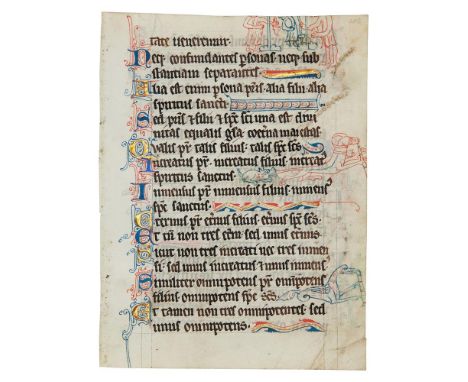 tate veneremur.
Neq; confundantes psonas. neq; sub
stantiam separantes.
Alia est enim psona pris. alia filii. alia
spiritus sancti.
Sed pris & filii & sps sci una est divi
nitas equalis gla coeterna maiestas.
Qualis pr. talis filius. talis sps scs.
Increatus pr. increatus filius. increat
spiritus sanctus.
Inmensus pr. inmensus filius. inmens
sps sanctus.
Eternus pr. eternus filius. eternus sps scs.
Et tn non tres eterni. sed unus eternus.
Sicut non tres increati nec tres inmen
si. sed unus increatus & unus inmens.
Similiter omnipotens pr. omnipotens
filius. omnipotens sps scs.
Et tamen non tres omnipotentes. sed
unus omnipotens.